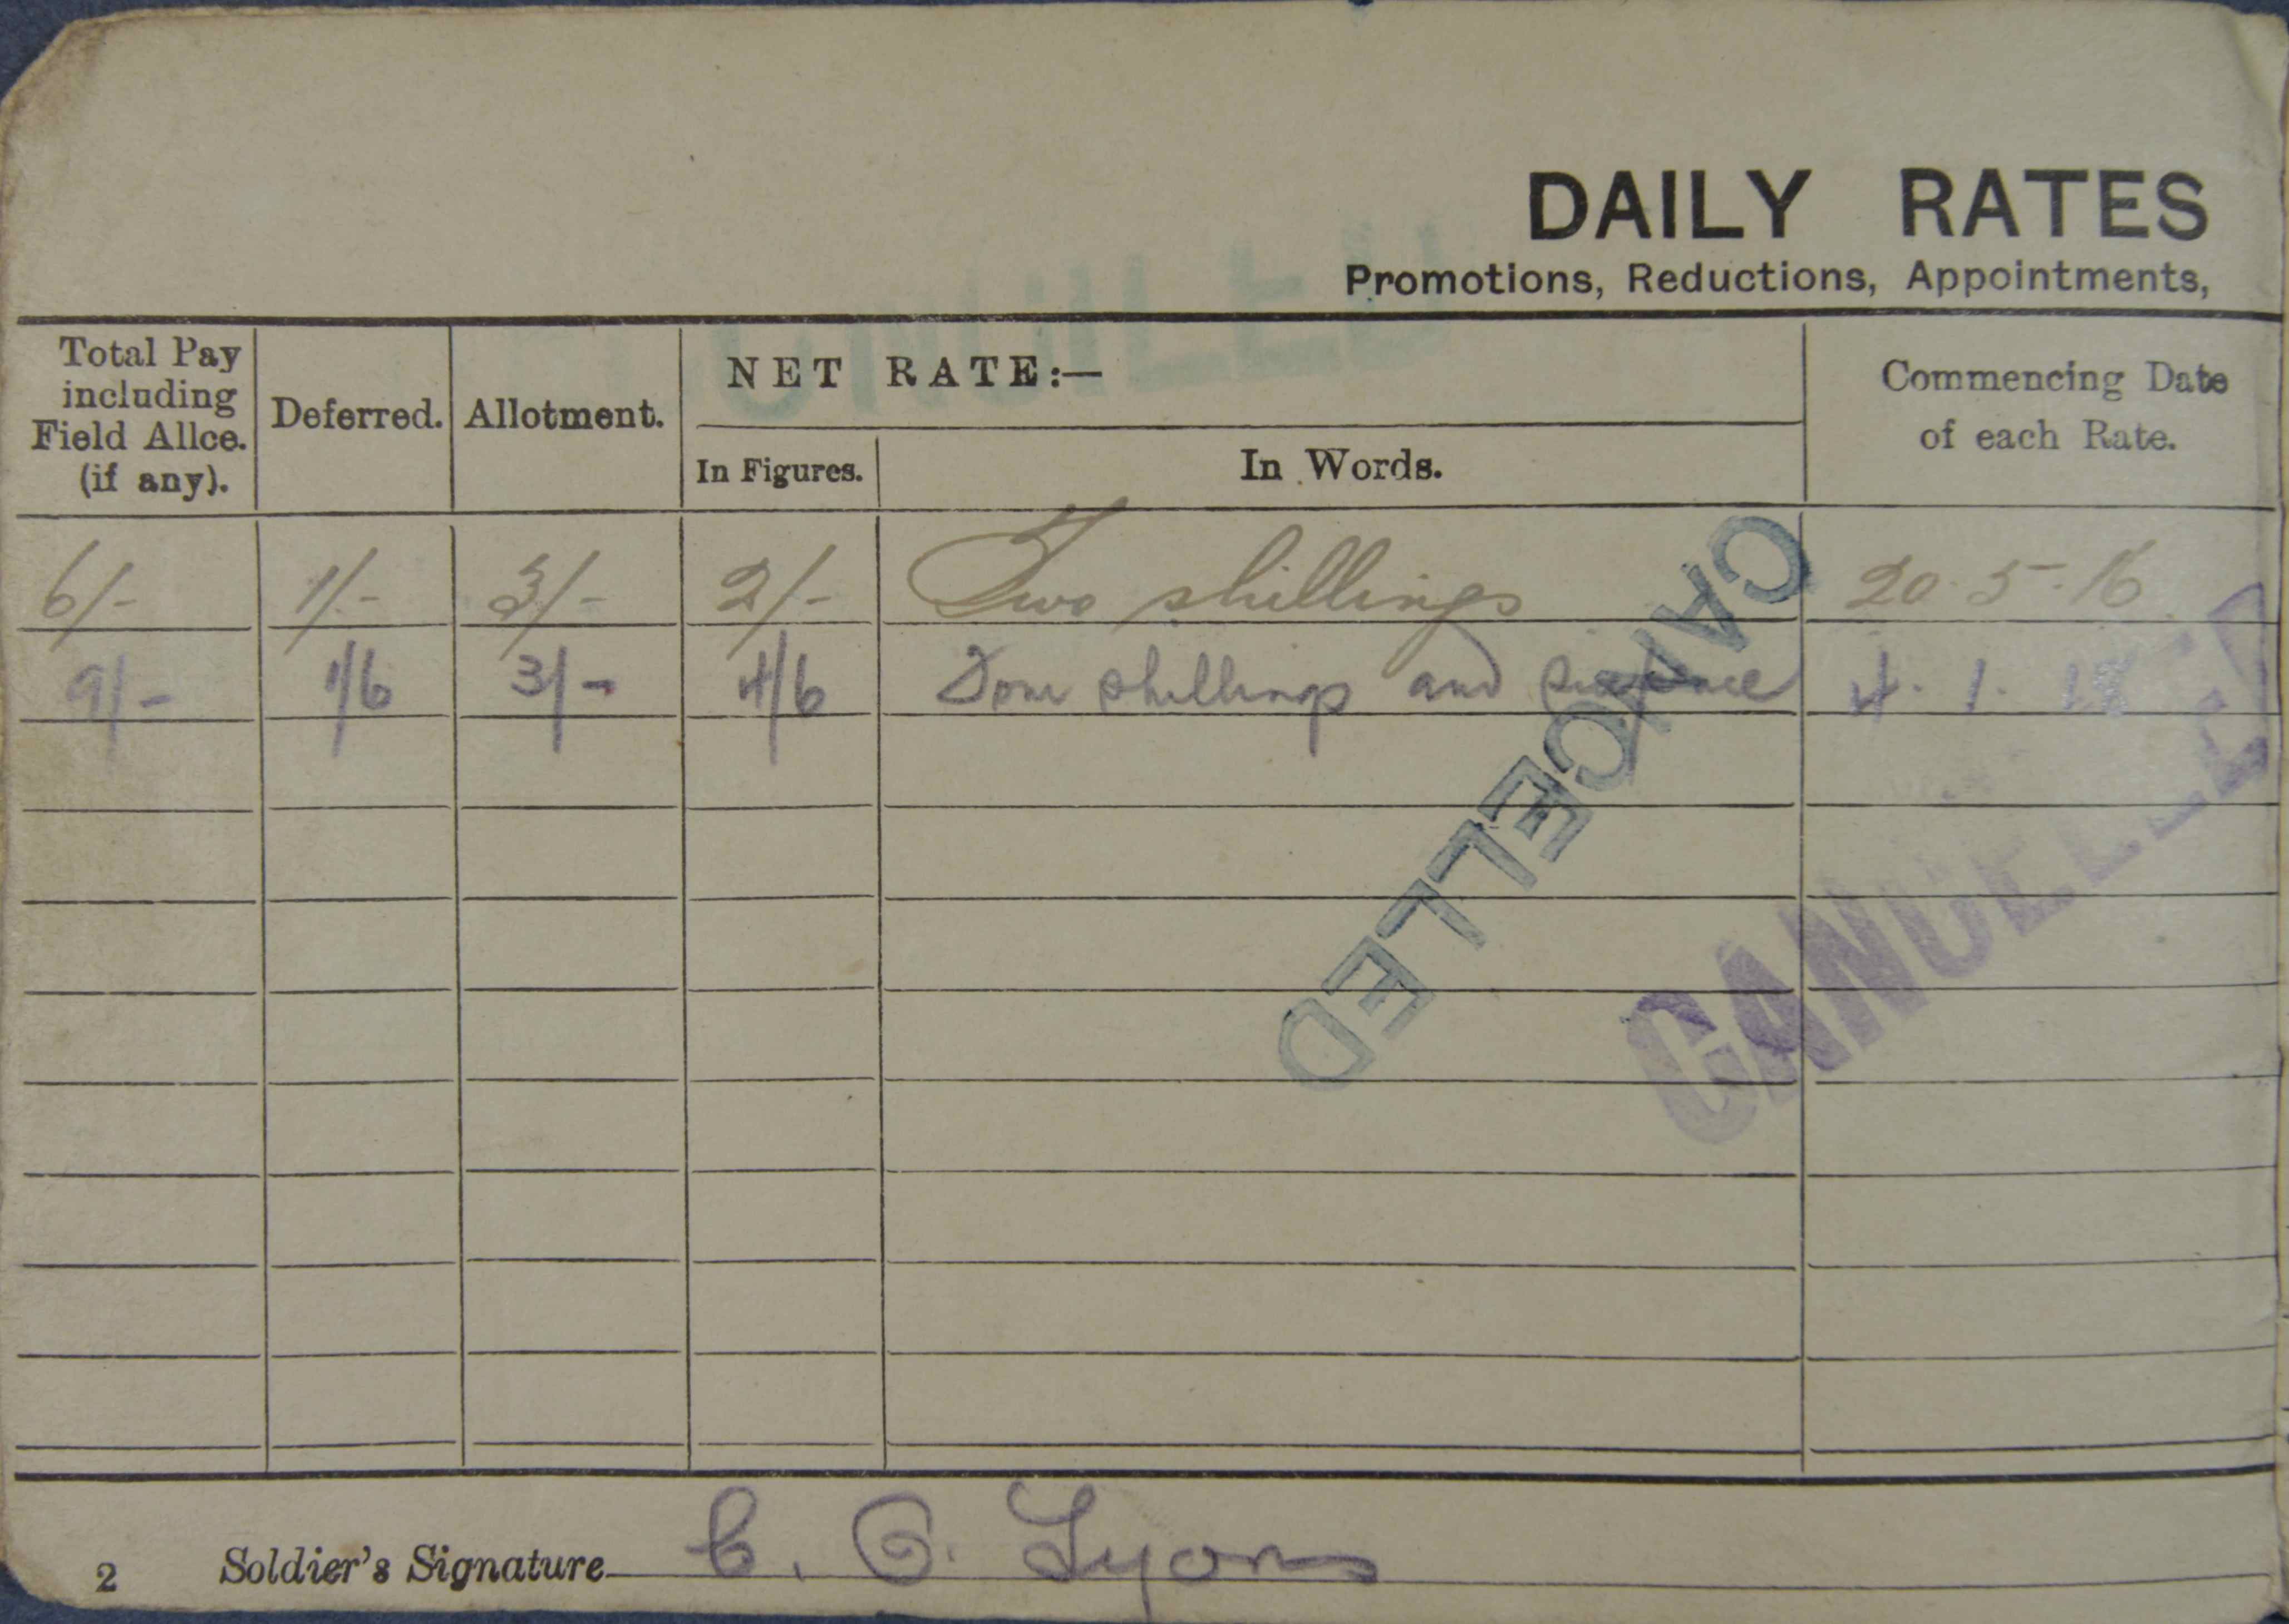 DAILY RATES
Promotions, Reductions, Appointments,
Total Pay including Field Allce. (if any).
Deferred.
Allotment.
NET RATE:—
In Figures.
In Words.
Commencing Date of each Rate.
6/- 1/- 3/- 2/- Two shillings 20.5.16
9/- 1/6 3/- 4/6 Four shillings and sixpence 4.1.18
CANCELLED
CANCELLED
2 Soldier's Signature C. G. Lyons